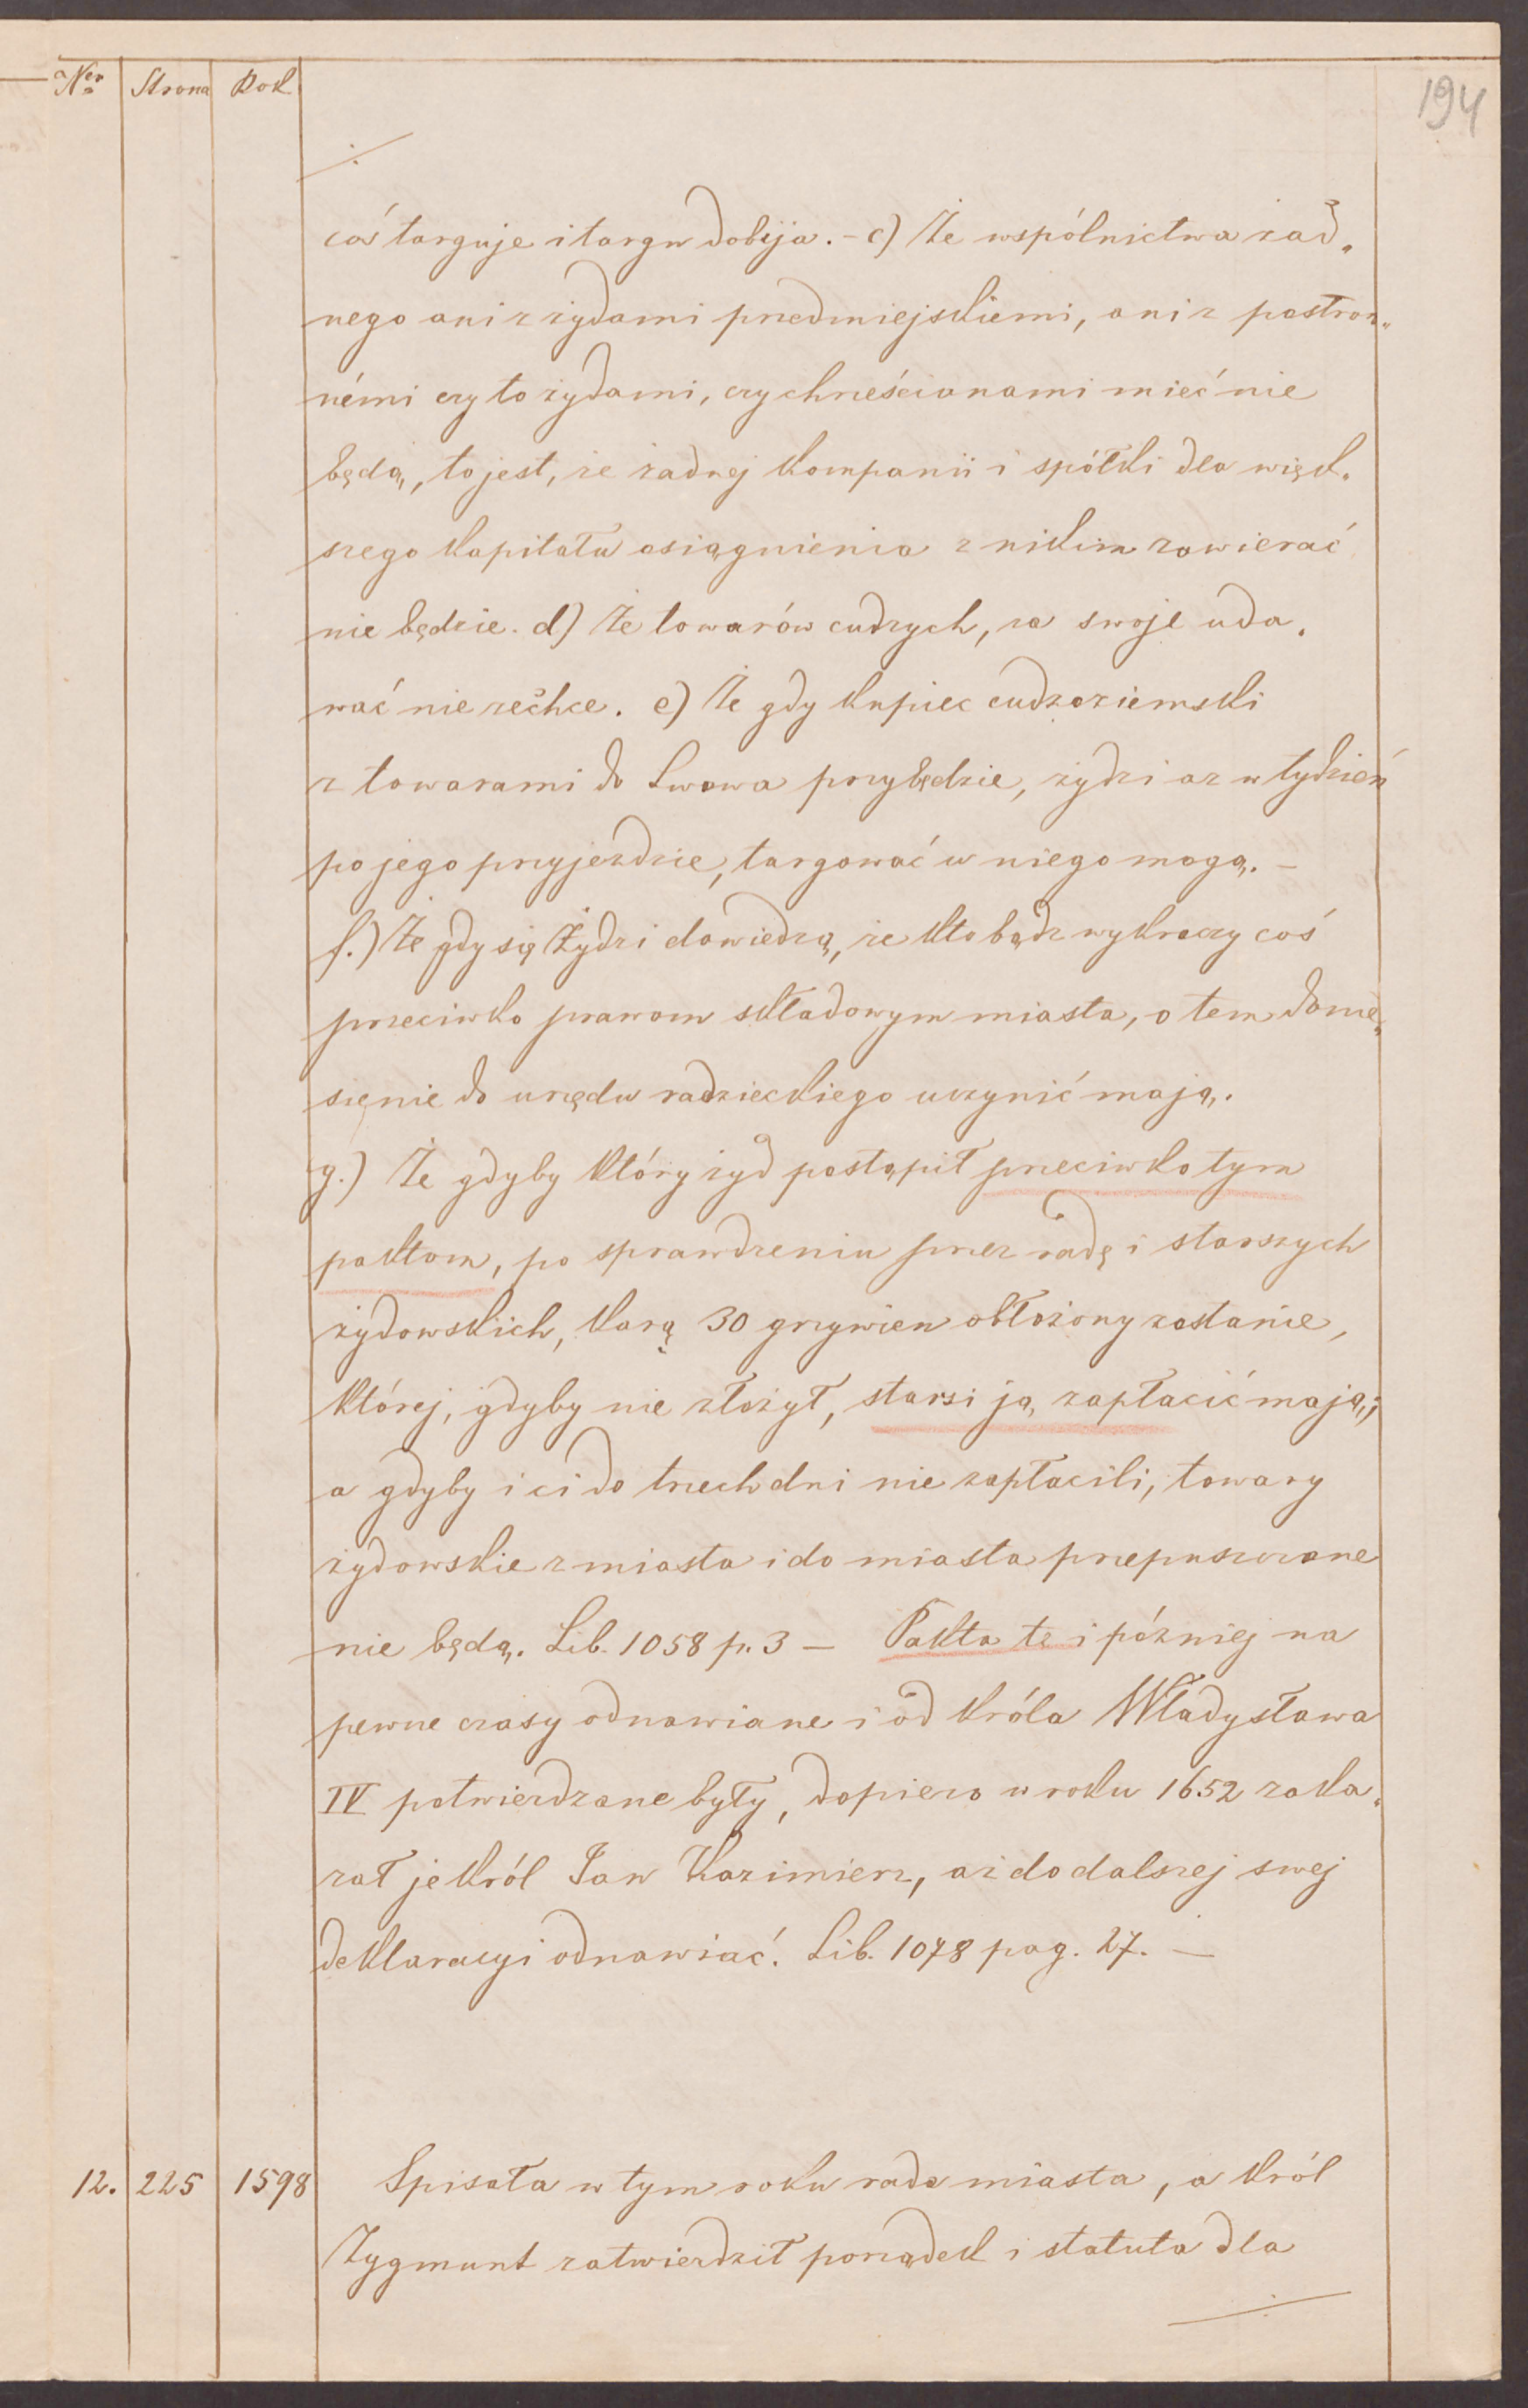 Ner Strona Rok
194
coś targuje i targu dobija. – c) Że wspólnictwa żad„
nego ani z żydami przedmiejskiemi, ani z postron„
némi czy to żydami, czy chrześcianami mieć nie
będą, to jest, że żadnej kompanii i spółki dla więk„
szego kapitału osiągnienia z nikim zawierać
nie będzie. d) Że towarów cudzych, za swoje uda„
wać nie zechce. e) Że gdy kupiec cudzoziemski
z towarami do Lwowa przybędzie, żydzi aż w tydzień
po jego przyjeździe, targować u niego mogą. –
f.) Że gdy się Żydzi dowiedzą, że kto bądź wykroczy coś
przeciwko prawom składowym miasta, o tem donie„
sięnie do urzędu radzieckiego uczynić mają.
g.) Że gdyby który żyd postąpił przeciwko tym
paktom, po sprawdzeniu przez radę i starszych
żydowskich, karą 30 grzywien obłożony zostanie,
której, gdyby nie złożył, starsi ją zapłacić mają;
a gdyby i ci do trzech dni nie zapłacili, towary
żydowskie z miasta i do miasta przepuszczane
nie będą. Lib. 1058 p. 3 – Pakta te i pózniej na
pewne czasy odnawiane i od króla Władysława
IV potwierdzane były, dopiero w roku 1652 zaka„
zał je król Jan Kazimierz, aż do dalszej swej
deklaracyi odnawiać. Lib. 1078 pag. 27. –
12. 225 1598 Spisała w tym roku rada miasta, a król
Zygmunt zatwierdził porządek i statuta dla